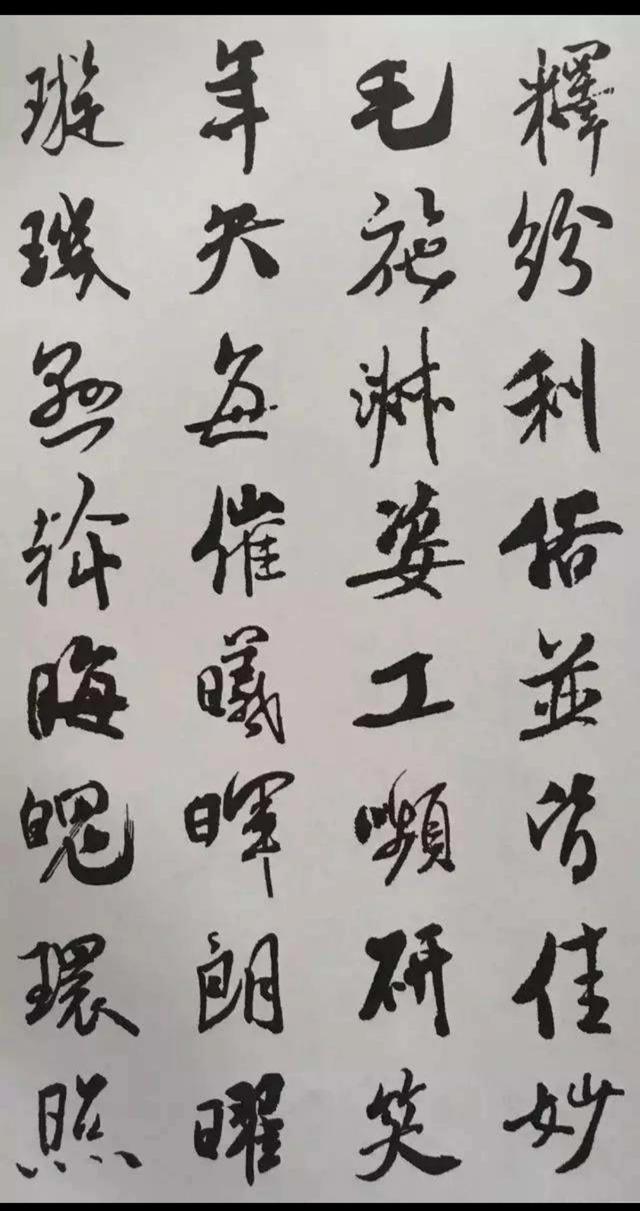 釋紛利俗並皆佳妙
毛施淑姿工嚬研笑
年矢每催曦暉朗曜
璇璣懸斡晦魄環照